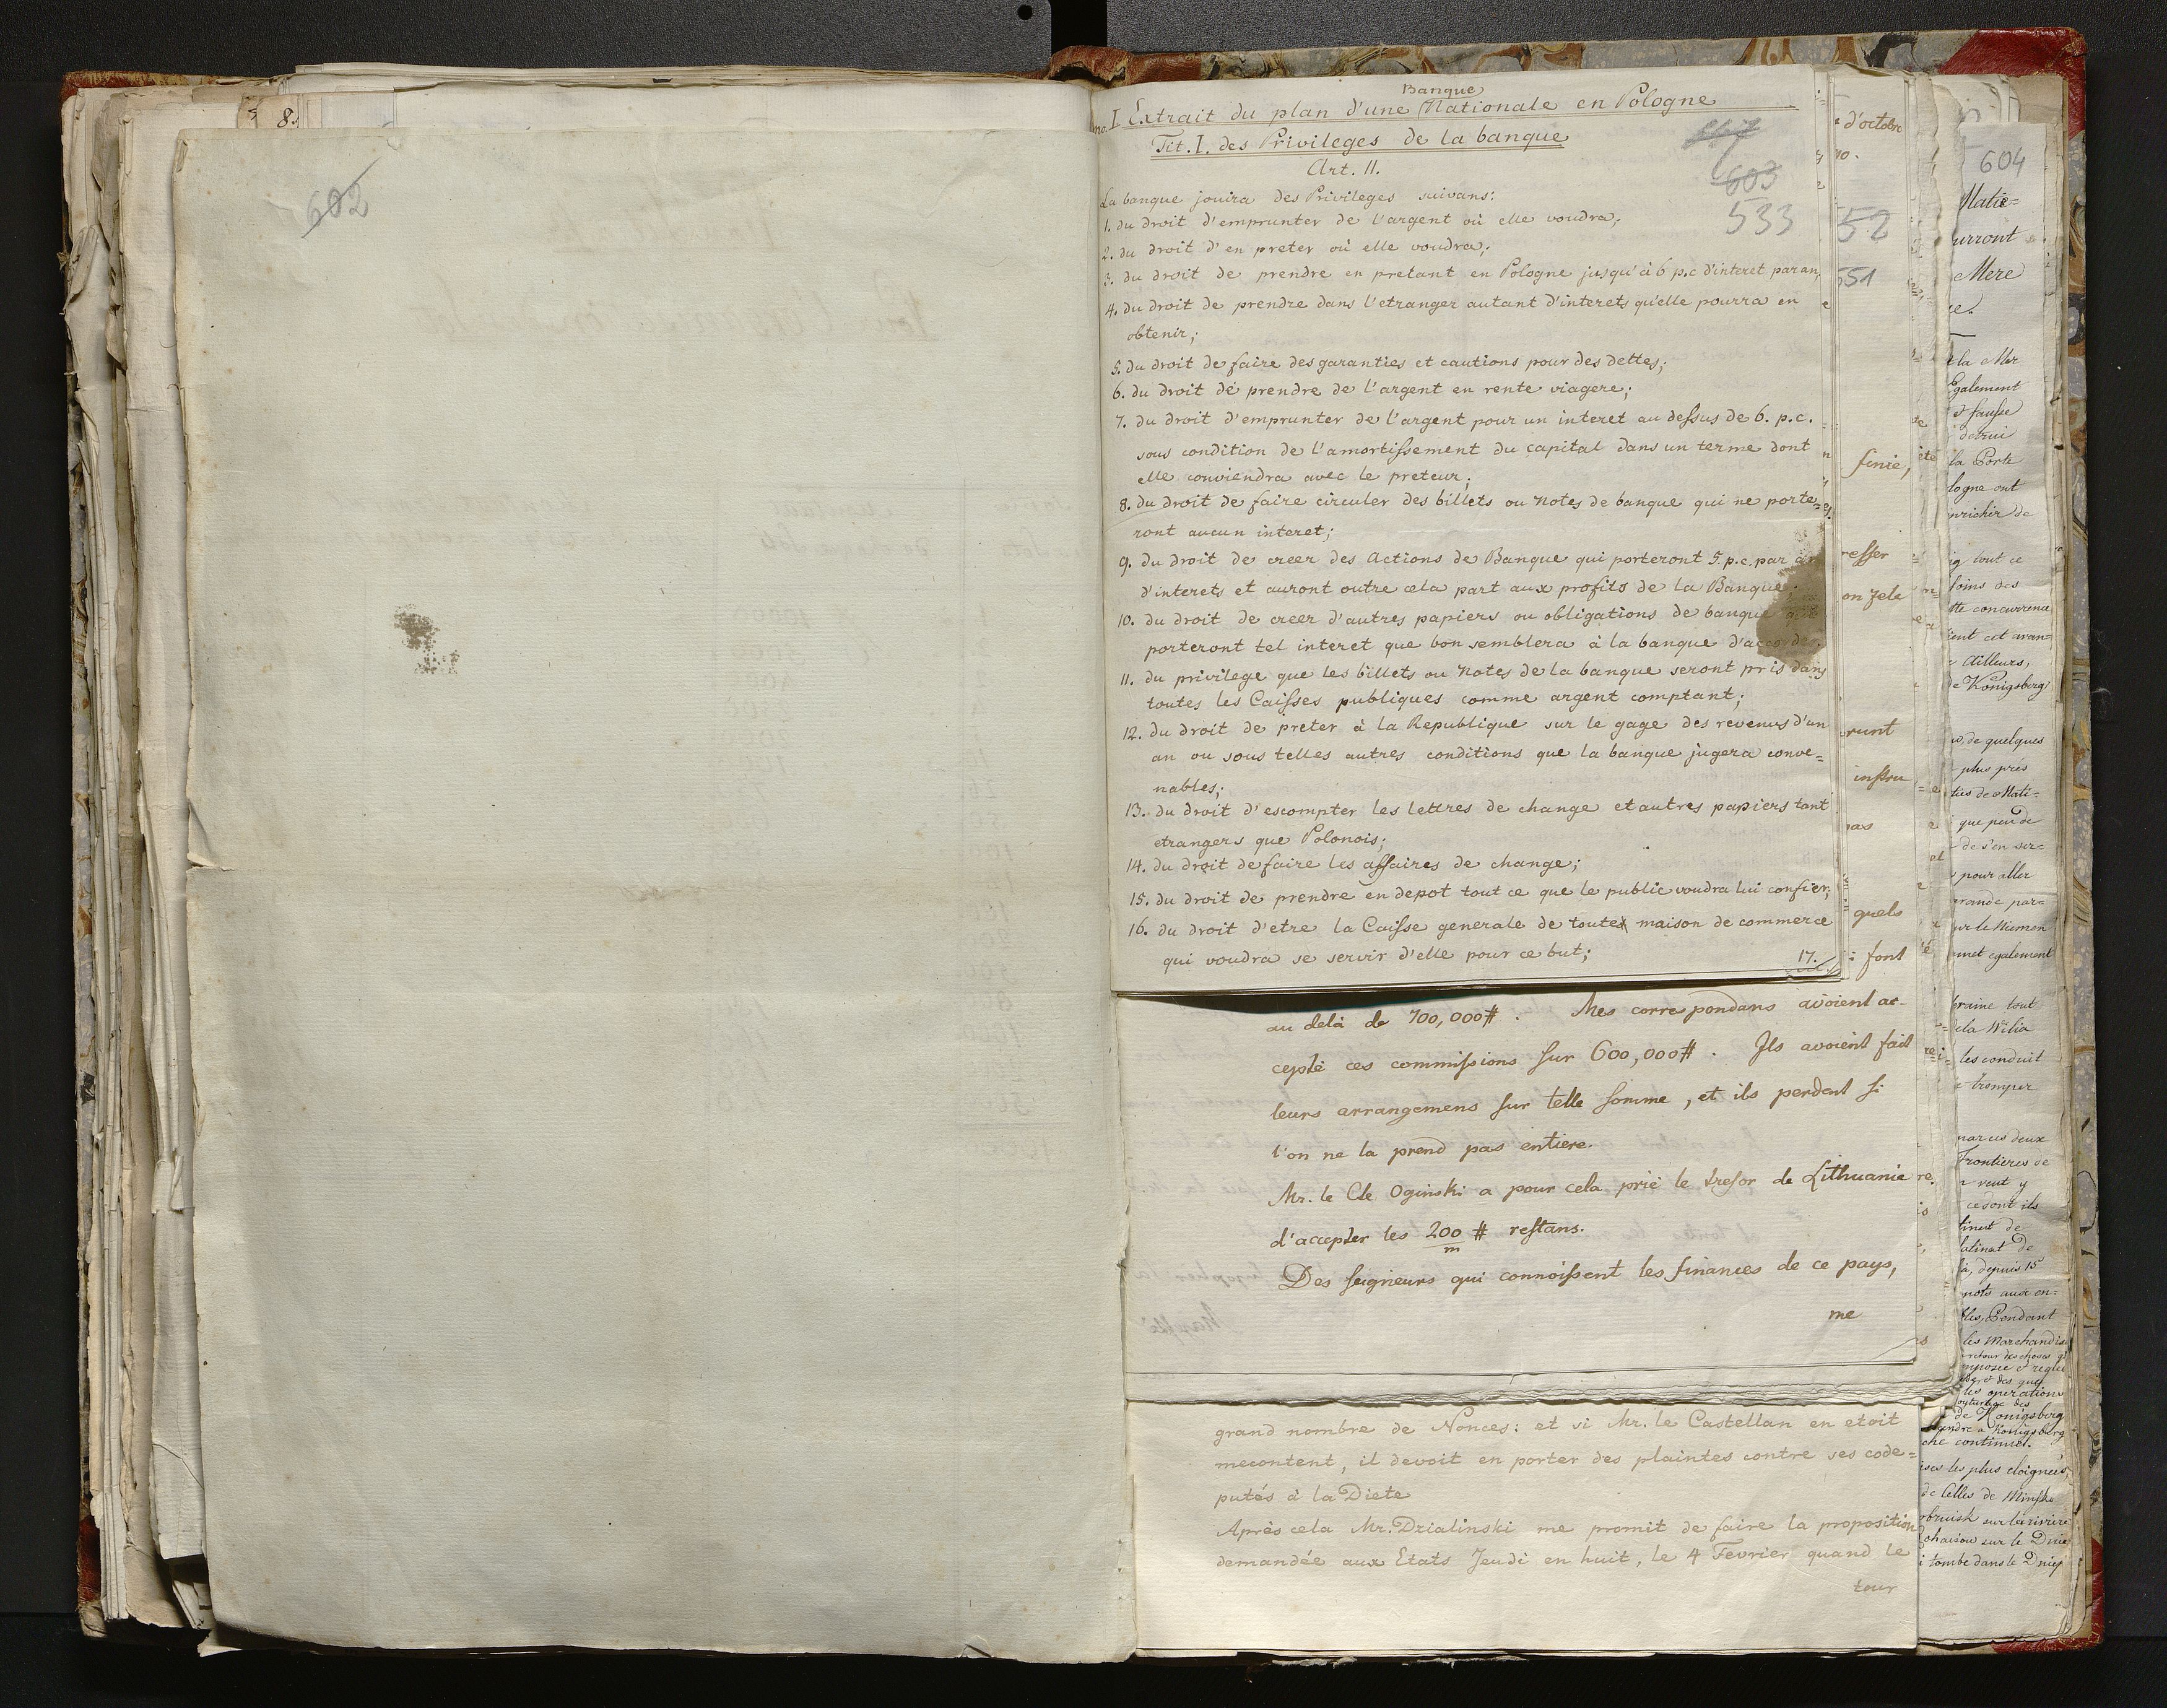 8.
602
Banque
no. I Extrait du plan d'une Nationale en Pologne
Tit. I. des Privileges de la banque
Art. 11.
603
533
La banque jouira des Privileges suivans:
1. du droit d'emprunter de l'argent où elle voudra;
2. du droit d'en preter où elle voudra;
3. du droit de prendre en pretant en Pologne jusqu'à 6 p.c d'interet par an;
4. du droit de prendre dans l'etranger autant d'interets qu'elle pourra en
obtenir;
5. du droit de faire des garanties et cautions pour des dettes;
6. du droit de prendre de l'argent en rente viagere;
7. du droit d'emprunter de l'argent pour un interet au dessus de 6. p.c.
sous condition de l'amortissement du capital dans un terme dont
elle conviendra avec le preteur;
8. du droit de faire circuler des billets ou Notes de banque qui ne porte=
ront aucun interet;
9. du droit de creer des Actions de Banque qui porteront 5. p.c. par an
d'interets et auront outre cela part aux profits de la Banque;
10. du droit de creer d'autres papiers ou obligations de banque qui
porteront tel interet que bon semblera à la banque d'accorder.
11. du privilege que les billets ou Notes de la banque seront pris dans
toutes les Caisses publiques comme argent comptant;
12. du droit de preter à la Republique sur le gage des revenus d'un
an ou sous telles autres conditions que la banque jugera conve=
nables;
13. du droit d'escompter les lettres de change et autres papiers tant
etrangers que Polonois;
14. du droit de faire les affaires de change;
15. du droit de prendre en depot tout ce que le public voudra lui confier;
16. du droit d'etre la Caisse generale de toute maison de commerce
qui voudra se servir d'elle pour ce but;
17.
au delà de 700,000#. Mes correspondans avoient ac-
cepté ces commissions sur 600,000#. Ils avoient fait
leurs arrangemens sur telle somme, et ils perdent si
l'on ne la prend pas entiere.
Mr. le Cte Oginski a pour cela prié le tresor de Lithuanie
d'accepter les 200 # restans.
m
Des seigneurs qui connoissent les finances de ce pays,
me
grand nombre de Nonces: et si Mr. le Castellan en etoit
mecontent, il devoit en porter des plaintes contre ses code=
putés à la Diete
Après cela Mr. Dzialinski me promit de faire la proposition
demandée aux Etats Jeudi en huit, le 4 Fevrier quand le
tour
d'octobre
52
551
finie,
resser
on zele
instru
pas
quels
font
604
Matie=
urront
Mere
la Mer
Egalement
et fausse
detrui
la Porte
logne ont
enrichir de
tout ce
soins des
tte concurrence
ient cet avan=
Ailleurs,
de Königsberg
de quelques
plus près
ties de Mati=
que peu de
de s'en ser=
pour aller
grande par=
sur le Niemen
met egalement
raine tout
ela Wilia
les conduit
tromper
par ces deux
Frontieres de
veut y
ce dont ils
tinat de
latinat de
depuis 15
nots aux en=
Pendant
les Marchandises
les operations
de Konigsberg
che continuel.
ises les plus eloignées,
de Celles de Minsk
obruisk sur la riviere
i tombe dans le Dniep